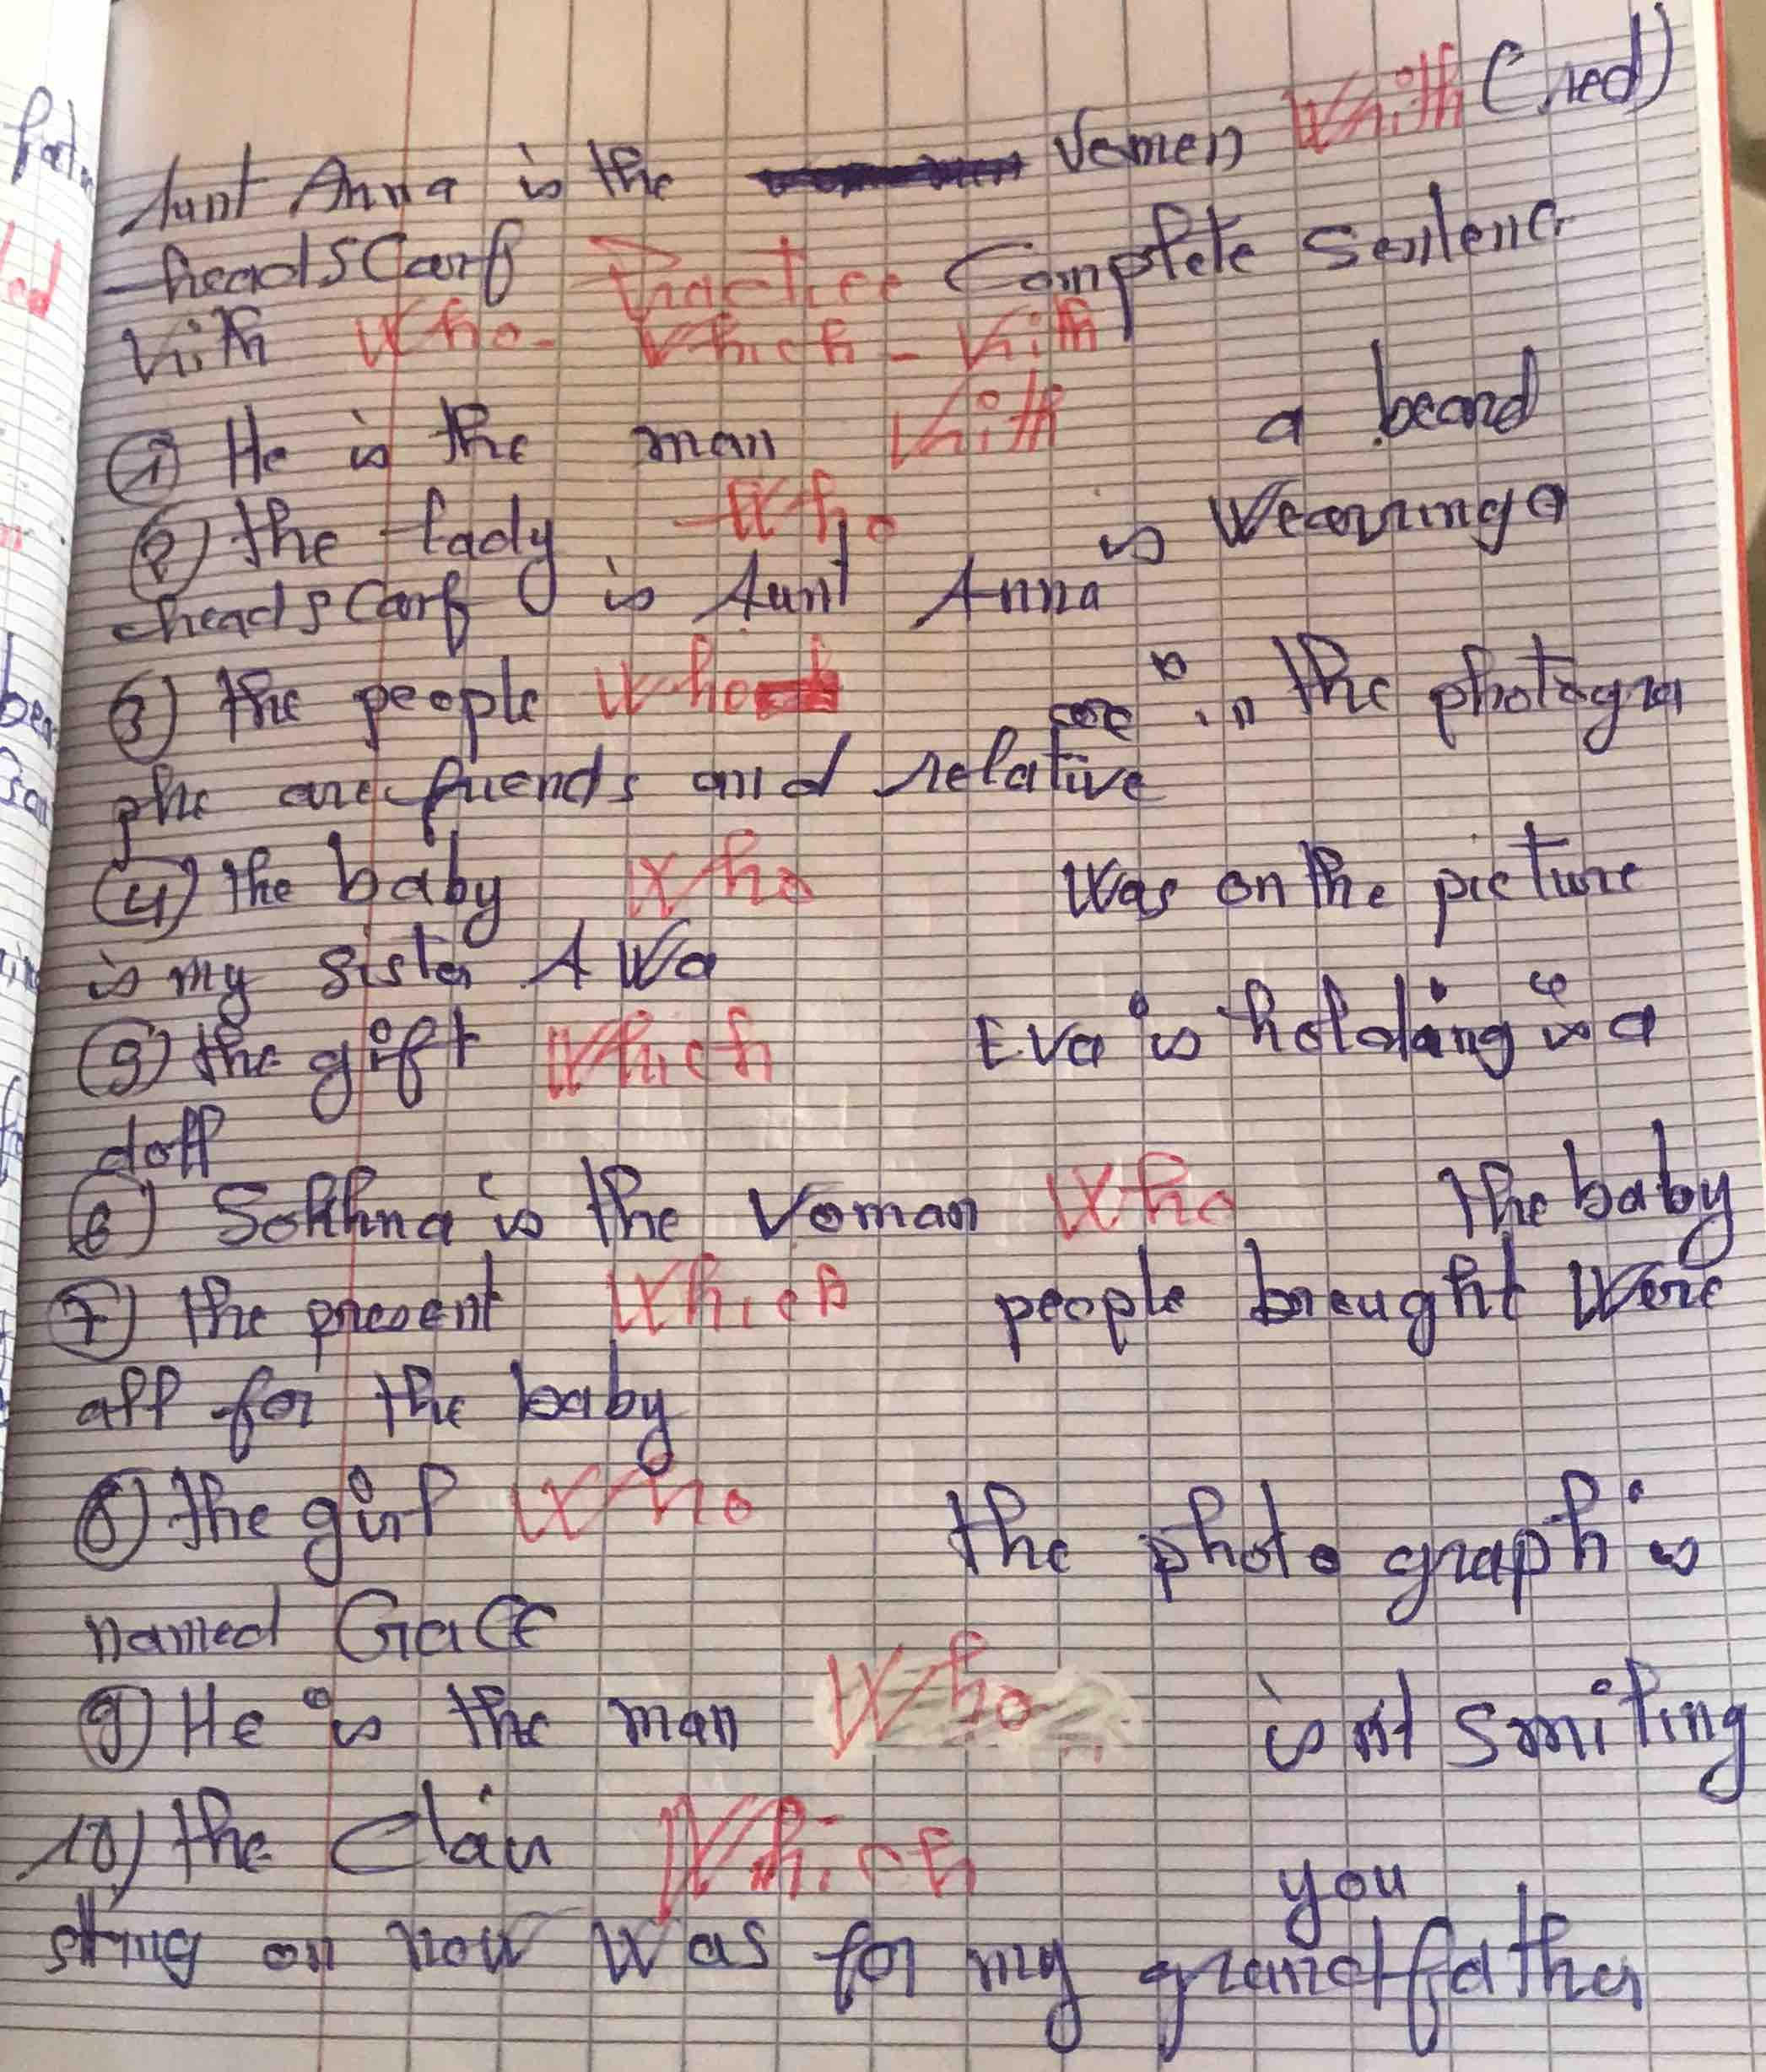 Aunt Anna is the Vomen With (red)
headscarf Practice Complete Sentence
With Who - Which - With
① He is the man With a beard
② the lady Who is Wearring a
headscarf is Aunt Anna
③ the people Who are in the photogra
phe are friends and relative
④ the baby Who Was on the picture
is my sister AWa
⑤ the gift Which Eva is holding is a
doll
⑥ Sokhna is the Voman Who the baby
⑦ the present Which people braught Were
all for the baby
⑧ the girl Who the photo graph is
named Grace
⑨ He is the man Who is not smiling
10) the Clair Which you
sitting on now Was for my grandfather